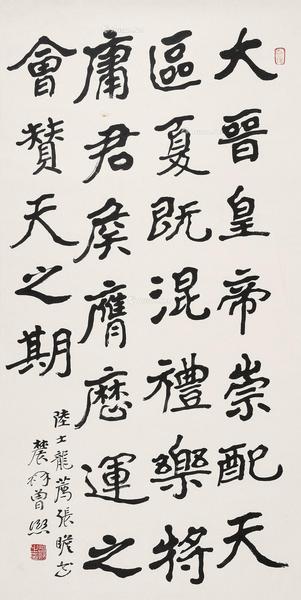 大晉皇帝崇配天
區夏既混禮樂將
庸君侯膺歷運之
會贊天之期
陸士龍薦張瞻書
農髯曾熙